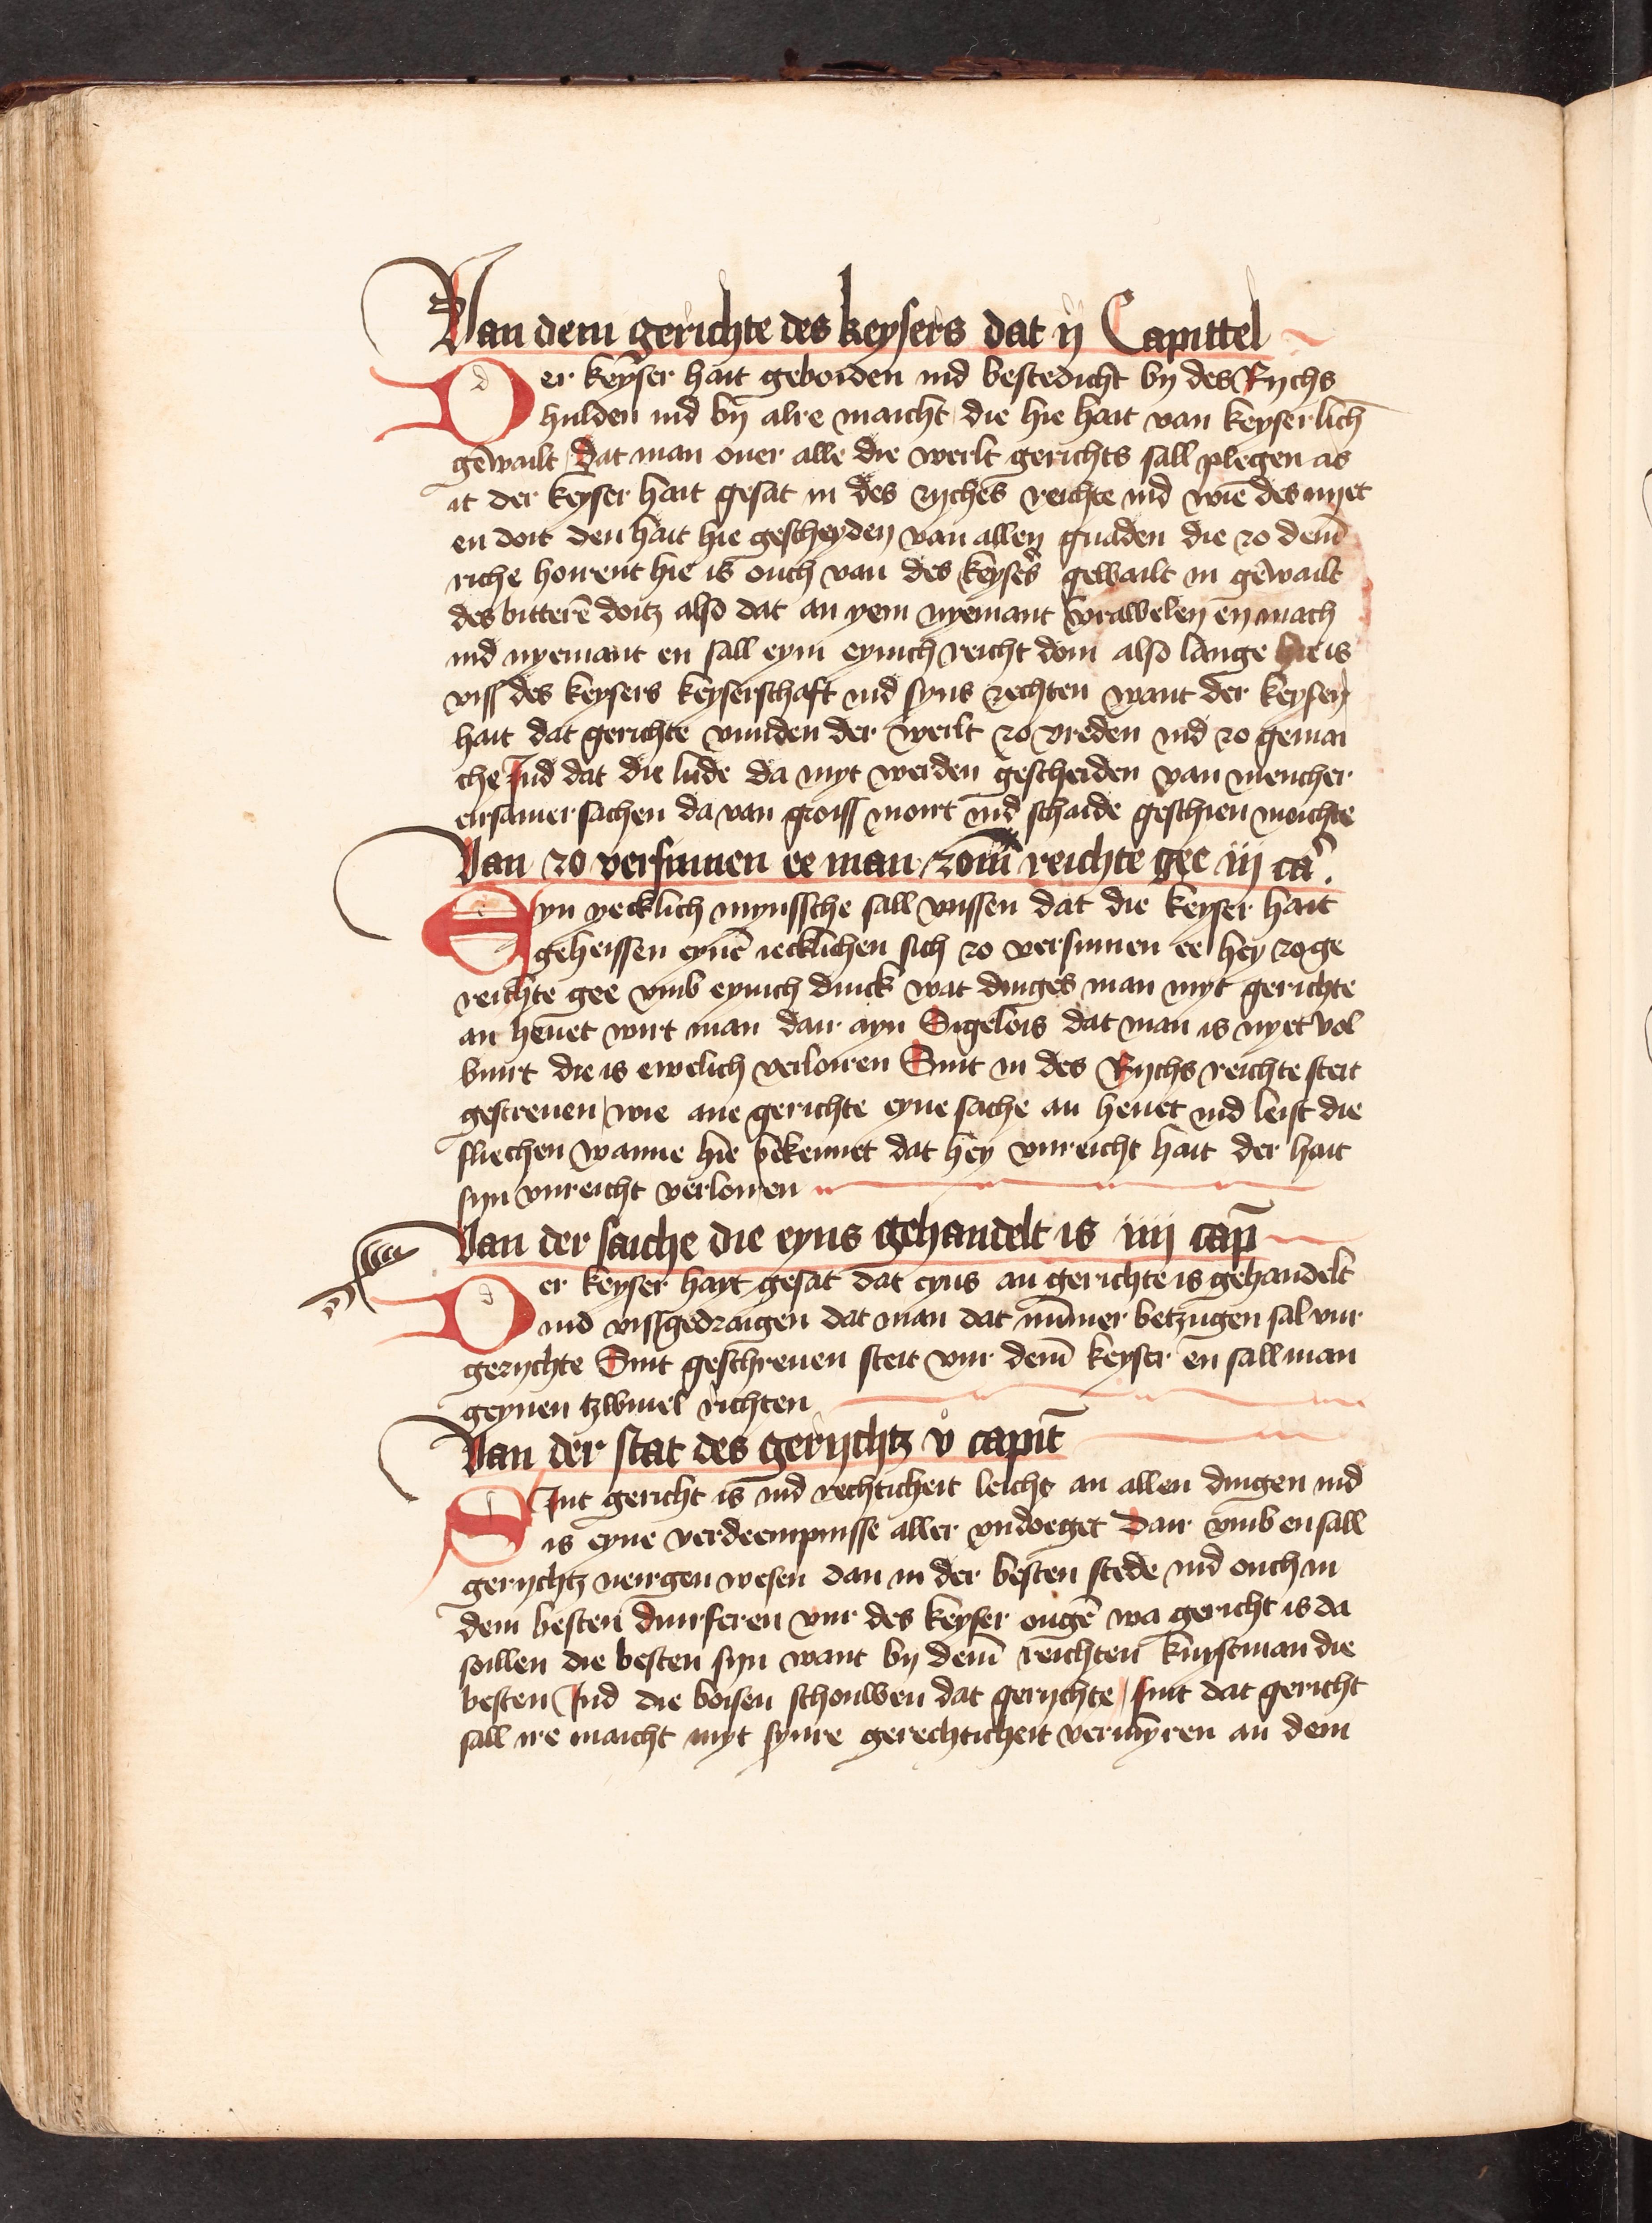 Van dem gerichte des keysers dat ij Capittel
Der keyser hait geboiden ind bestedicht by des Rychs
hulden ind by alre maicht die hie hait van keyserlich̄
gewailt Dat man ouer alle die werlt gerichts sall plegen as
it der keyser hait gesat in des ryches reichte ind wie des nyet
en doit den hait hie gescheyden van allen gnaden die zo dem̄
riche hoirent hie is ouch van des keysers gewailt in gewailt
des bitterē doitz also dat an yem nyemant vrawelen en mach
ind nyemant en sall eym eynich reicht doin also lange hie is
viss des keysers keyserschaft ind syns rechten want der keyser
hait dat gerichte vunden der werlt zo vreden ind zo gemai
che Ind dat die lude da myt werden gescheiden van mencher
eirsamer sachen da van groiss moirt ind schaide geschien moichte
Van zo versinnen ee man zom̄ reichte gee iij ca.
Eyn yecklich mynssche sall wissen dat die keyser hait
geheissen eynē iecklichen sich zo versinnen ee hey zo ge
reichte gee vmb eynich dinck wat dinges man myt gerichte
an heuet wirt man dair ayn Sigelois dat man is nyet vol
buirt die is ewelich verloiren Sint in des Rychs reichte steit
gescreuen wie ane gerichte eyne sache an heuet ind leist die
sliechen wanne hie bekennet dat hey vnreicht hait der hait
syn vnreicht verloiren
Van der saiche die eyns gehandelt is iiij cap̄
Der keyser hayt gesat dat eyns an gerichte is gehandelt
ind vissgedraigen dat man dat nūmer betzugen sal vur
gerychte Sint geschreuen steit vur dem̄ keyser en sall man
geynen tzwiuel richten
Van der stat des gerychtz v capit̄
SInt gericht is ind rechticheit leicht an allen dingen ind
is eyne verdeempnisse aller vndoeget Dair vmb en sall
gerychtz neirgen wesen dan in der besten stede ind ouch in
dem besten duirferen vur des keyser ougē wa gericht is da
soillen die besten syn want by dem̄ reichten kuyst man die
besten Ind die boisen schouwen dat gerychte sint dat gericht
sall ire maicht myt synre gerechticheit vermyren an dem